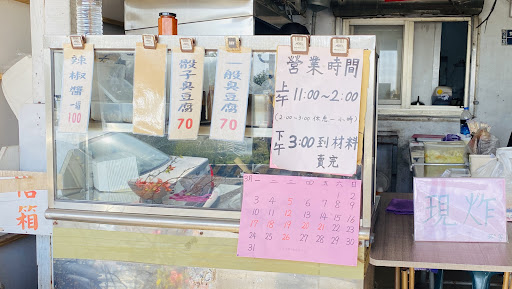 辣椒醬一罐
100
骰子臭豆腐
70
一般臭豆腐
70
營業時間
上午 11:00~2:00
(2:00~3:00 休息一小時)
下午 3:00 到材料
賣完
3月 一 二 三 四 五 六 日
1 2
3 4 5 6 7 8 9
10 11 12 13 14 15 16
17 18 19 20 21 22 23
24 25 26 27 28 29 30
31
現炸
信箱